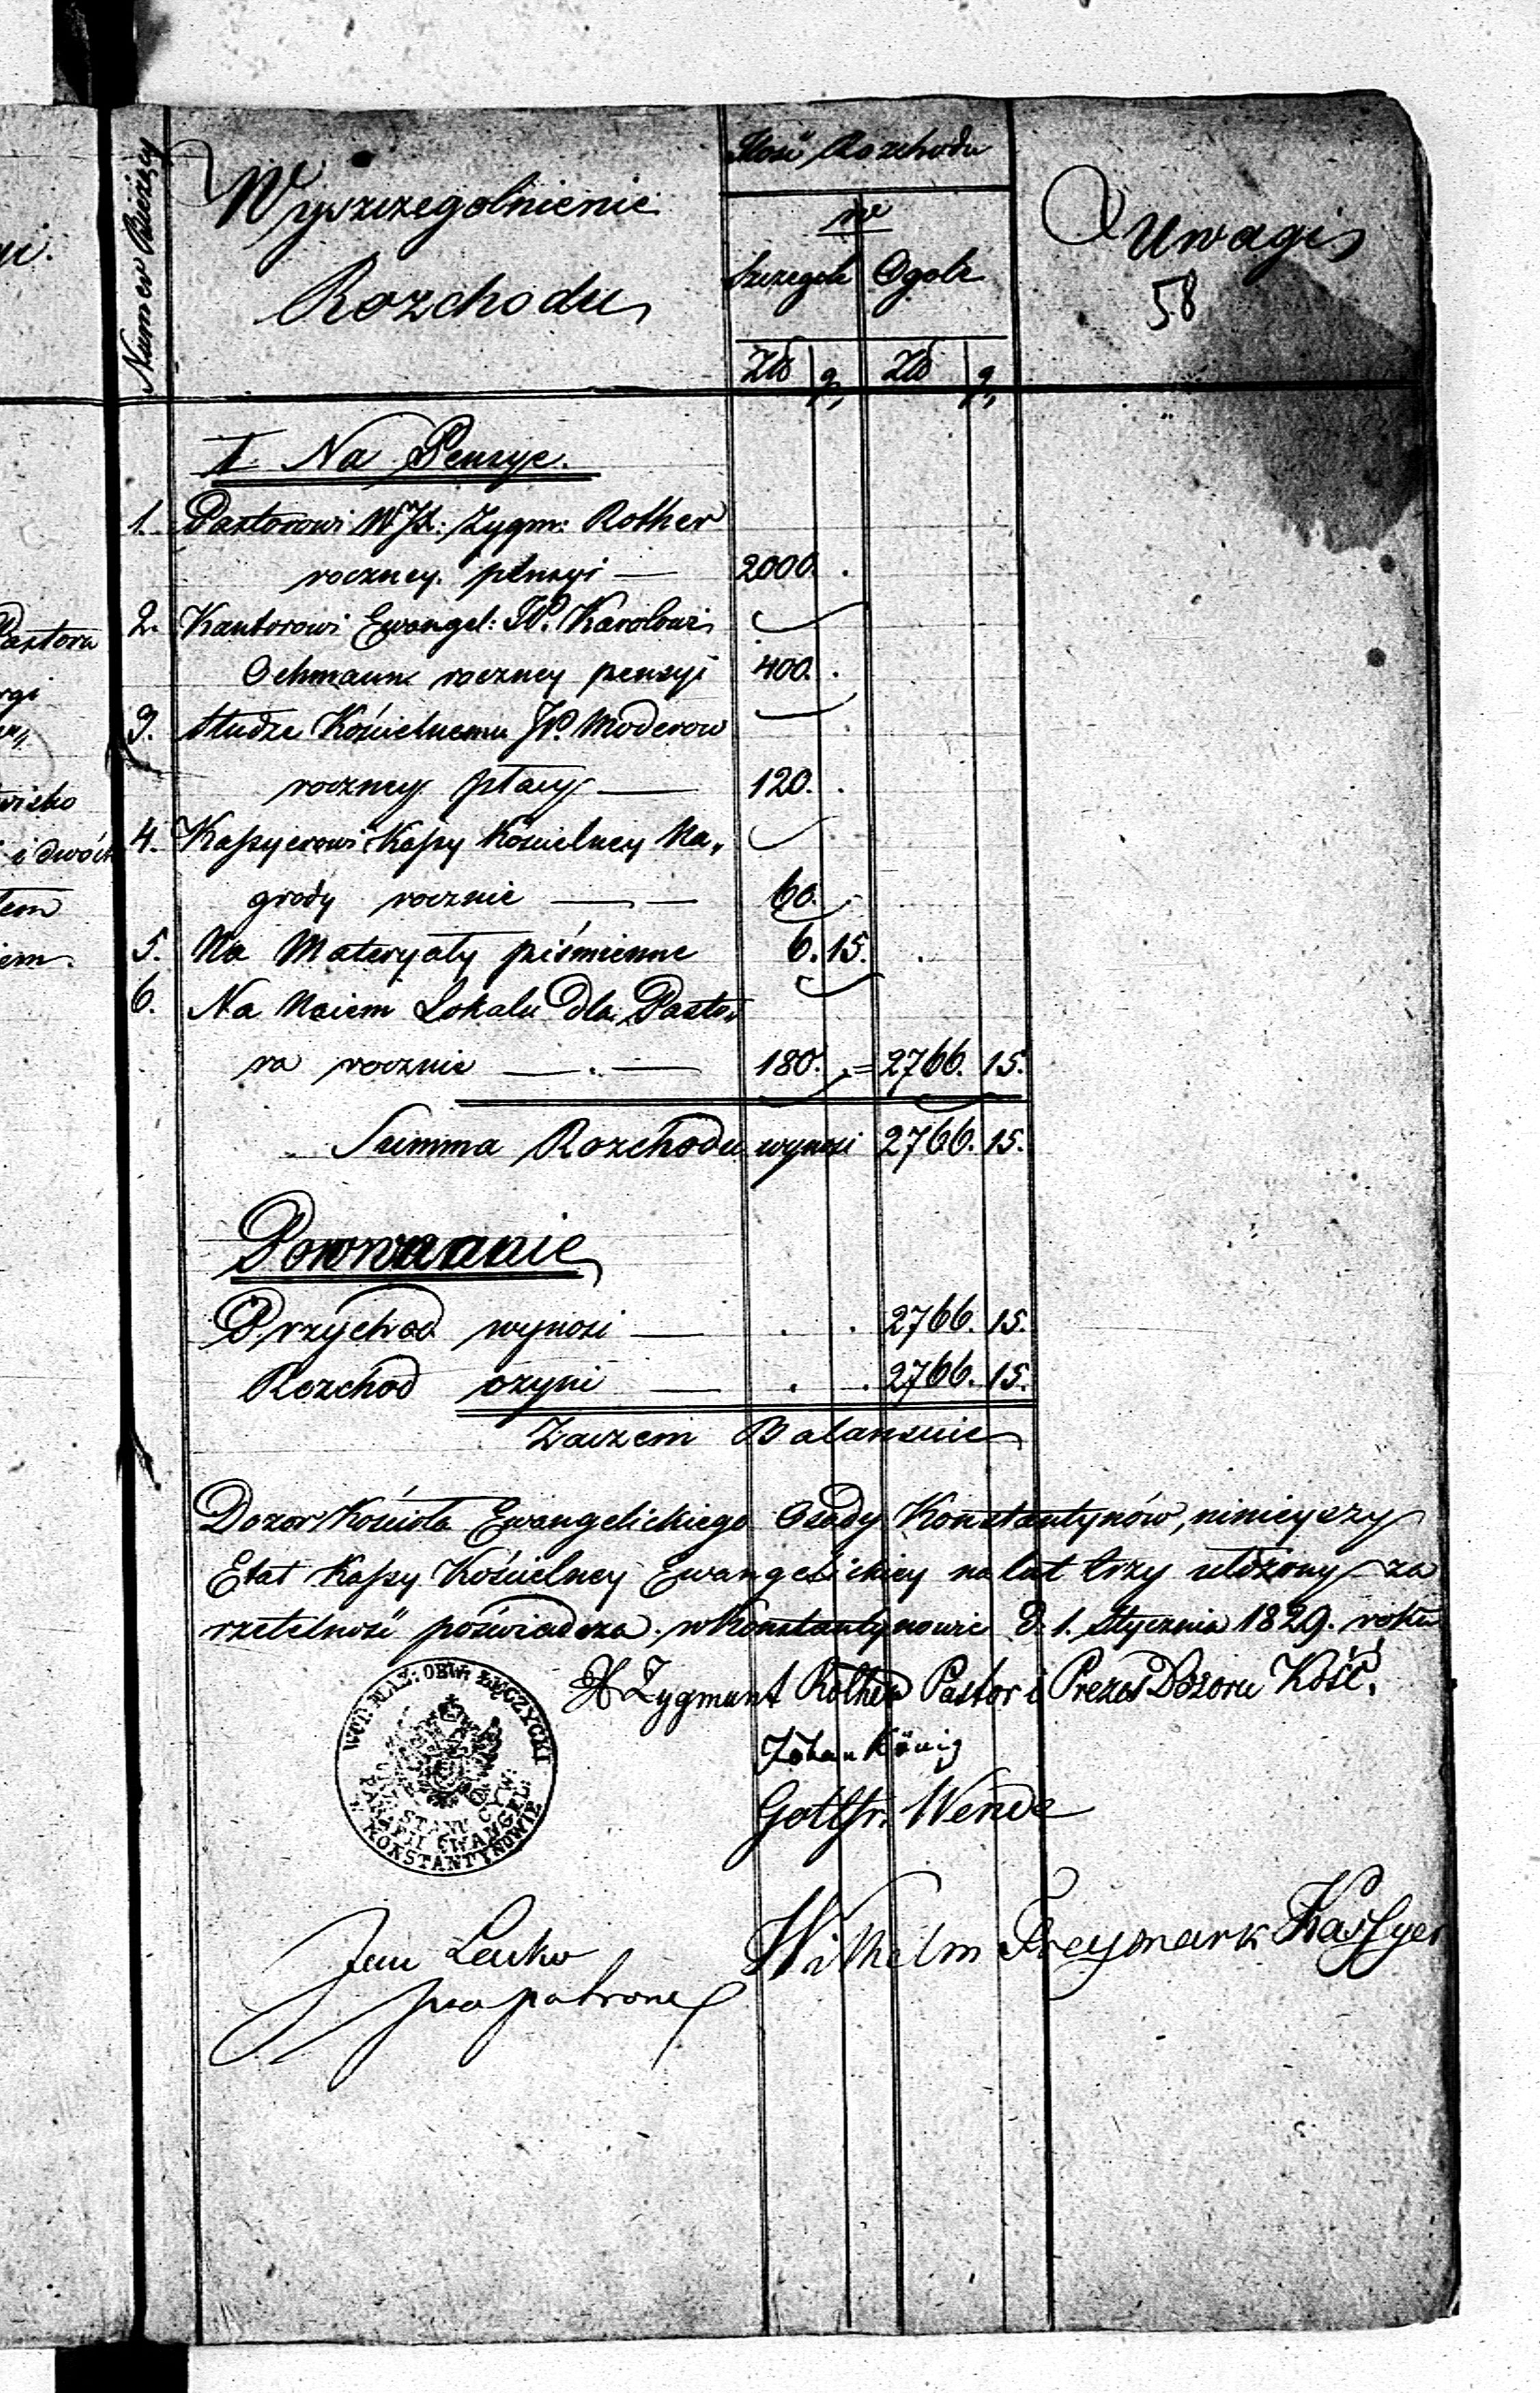 Numer Bieżący
Wyszczegolnienie
Rozchodu
Ilość Rozchodu
w
Szczegole Ogole
Zło g, Zło g,
Uwagi
58
I. Na Pensye.
1. Pastorowi WJX: Zygm: Rother
roczney pensyi — 2000.
2. Kantorowi Ewangel: W. Karolowi
Oehmann roczney pensyi 400.
3. Słudze Kościelnemu W. Moderow
roczney płacy — 120.
4. Kassyerowi Kassy Kościelney Na„
grody rocznie — — 60.
5. Na Materyały piśmienne 6. 15.
6. Na Naiem Lokalu dla Pasto„
ra rocznie — . — 180. = 2766. 15.
Summa Rozchodu wynosi 2766. 15.
Porownanie
Przychod wynosi — . . 2766. 15.
Rozchod czyni — . . 2766. 15.
Zaczem Balansuie
Dozor Kościoła Ewangelickiego Osady Konstantynów, ninieyszy
Etat Kassy Kościelney Ewangelickiey na lat trzy ułożony za
rzetelność poświadcza. w Konstantynowie d. 1. Stycznia 1829. roku
X Zygmunt Rother Pastor i Prezes Dozoru Kość.
Johan König
Gottfr. Wende
WOJ: MAZ: OBW: ŁĘCZYCKI
STANU CYW:
PARAFII EWANGEL:
W KONSTANTYNOWIE
Wilhelm Freymark Kassyer
Jan Lesko
pro patrone
Pastora
i dwóch